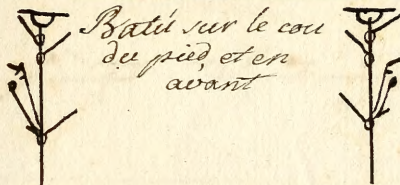 Batù sur le cou
du pied, et en
avant